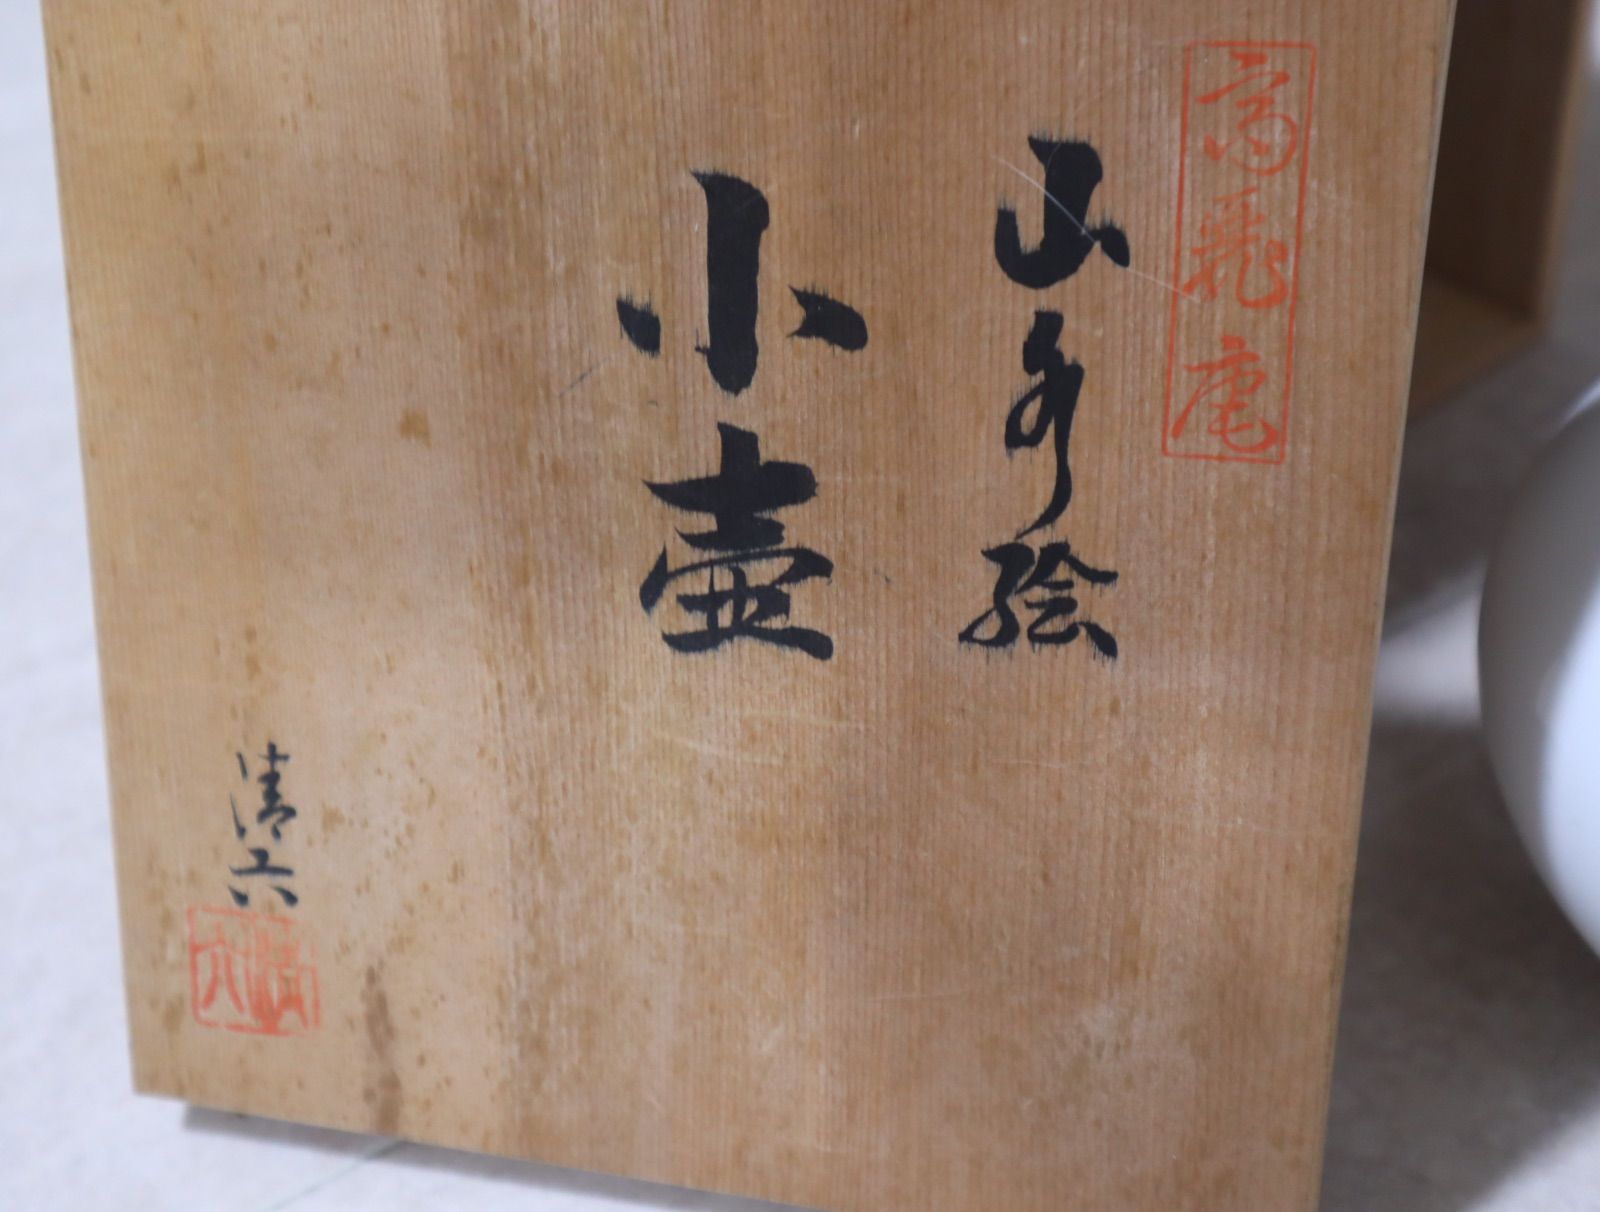 高麗庵
山水絵
小壺
清六
清六